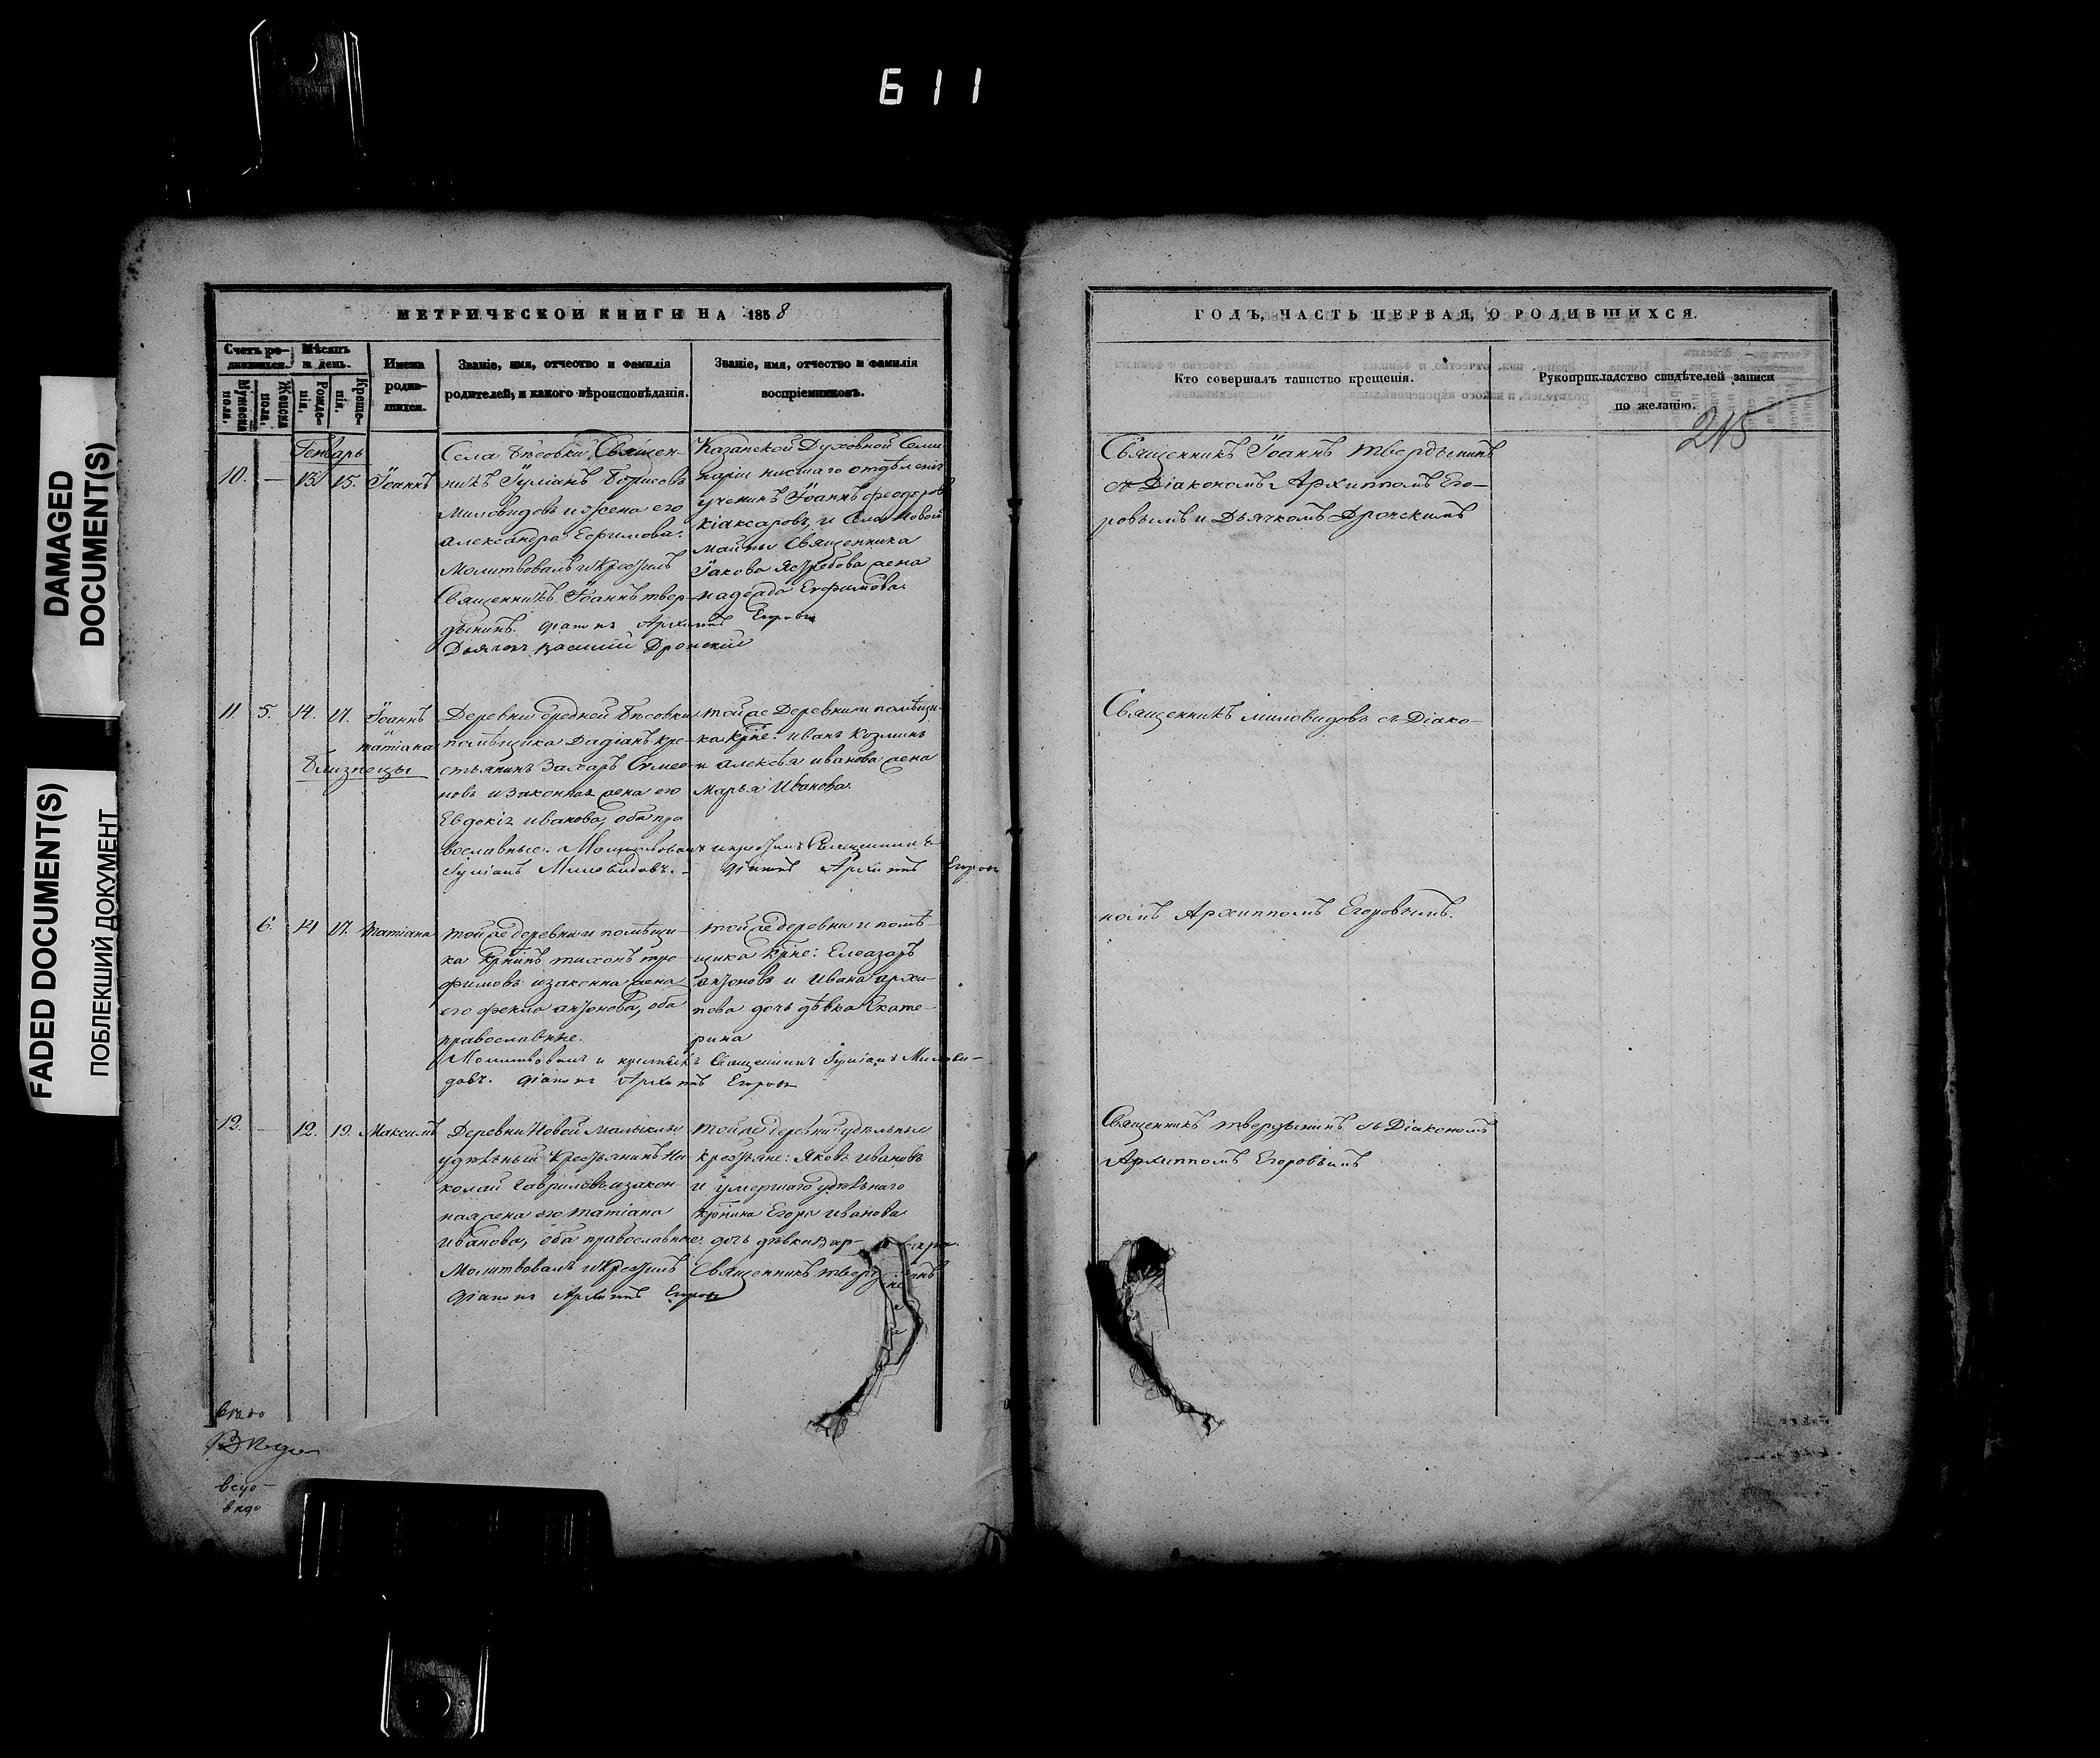 611
DAMAGED
DOCUMENT(S)
FADED DOCUMENT(S)
ПОБЛЕКШИЙ ДОКУМЕНТ
МЕТРИЧЕСКОЙ КНИГИ НА 1858
Счетъ ро-
дившихся.
Мѣсяцъ
и день.
Мужеска
пола.
Женска
пола.
Рожде-
нія.
Креще-
нія.
Имена
родив-
шихся.
Званіе, имя, отчество и фамилія
родителей, и какого вѣроисповѣданія.
Званіе, имя, отчество и фамилія
воспріемниковъ.
Генварь
10. — 13. 15. Іоаннъ
Села Бѣсовки Священ-
никъ Іуліанъ Борисовъ
Миловидовъ и жена его
Александра Ефимова.
Молитвовалъ и крестилъ
Священникъ Іоаннъ Твер-
дынинъ. Діаконъ Архиппъ Егоровъ
Дьячокъ Василій Дронскій
Казанской Духовной Семи-
наріи нисшаго отдѣленія
ученикъ Іоаннъ Феодоров
Кіаксаровъ, и Села Новой
Майны Священника
Іакова Ястребова жена
Надежда Евфимова.
11. 5. 14. 17. Іоаннъ
и
Татіана
Близнецы
Деревни Средней Бѣсовки
помѣщика Дадіанъ кре-
стьянинъ Захаръ Симео-
новъ и законная жена его
Евдокія Иванова, оба пра
вославные. Молитвовалъ и крестилъ Священникъ
Іуліанъ Миловидовъ. Діаконъ Архиппъ Егоровъ
той же Деревни и помѣщи-
ка Крне: Иванъ Козминъ
и Алексѣя Иванова жена
Марья Иванова.
6. 14 17. Татіана
той же деревни и помѣщи-
ка Крнинъ Тихонъ Тро-
фимовъ и законна жена
его Фекла Антонова, оба
православные.
Молитвовалъ и крестилъ Священникъ Іуліанъ Милови-
довъ. Діаконъ Архиппъ Егоровъ
той же деревни и помѣ-
щика Крне: Елеазаръ
Антоновъ и Ивана Архи-
пова дочь дѣвка Екате-
рина
12. — 12. 19. Максимъ
Деревни Новой Малыклы
удѣльный крестьянинъ Ни-
колай Гавриловъ и закон-
ная жена его Татіана
Иванова, оба православные.
Молитвовалъ и крестилъ Священникъ Твердынинъ
Діаконъ Архиппъ Егоровъ
той же деревни удѣльные
крестьяне: Яковъ Ивановъ
и умершаго удѣльнаго
Крнина Егора Иванова
дочь дѣвка Вар-вара.
ГОДЪ, ЧАСТЬ ПЕРВАЯ, О РОДИВШИХСЯ.
Кто совершалъ таинство крещенія.
Рукоприкладство свидѣтелей записи
по желанію.
215
Священникъ Іоаннъ Твердынинъ
съ Діакономъ Архиппомъ Его-
ровымъ и Дьячкомъ Дронскимъ
Священникъ Миловидовъ съ Діако-
номъ Архиппомъ Егоровымъ.
Священникъ Твердынинъ съ Діакономъ
Архиппомъ Егоровымъ